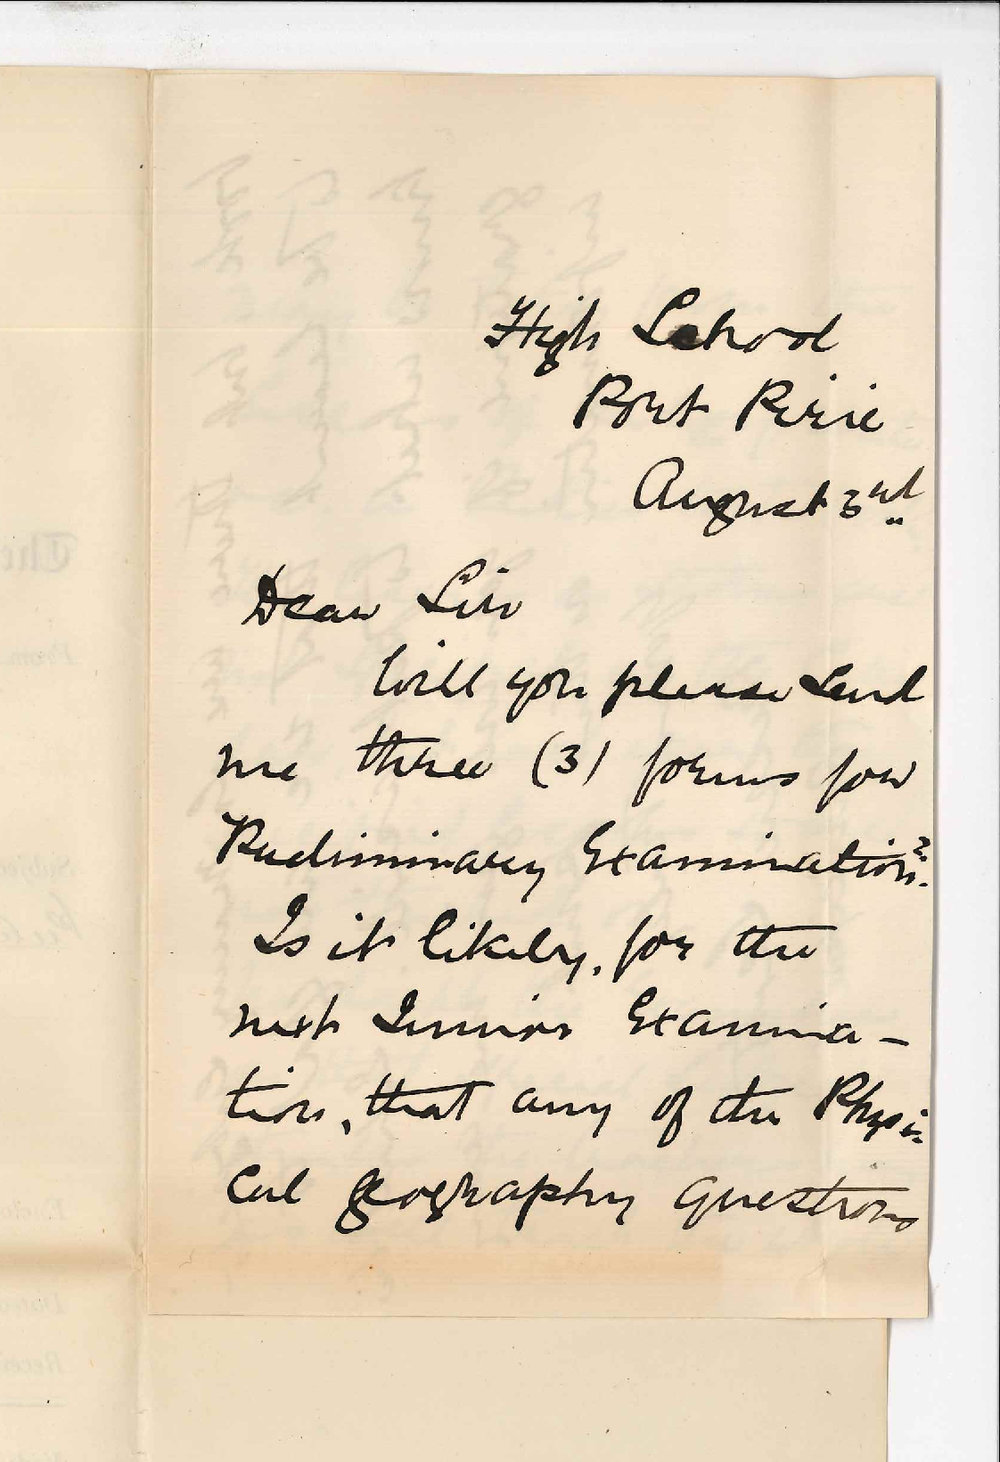 High School
Port Pirie
August 3rd
Dear Sir
Will you please send
me three (3) forms for
Preliminary Examination?
Is it likely, for the
next Junior Examina-
tion, that any of the Physi-
cal geography questions